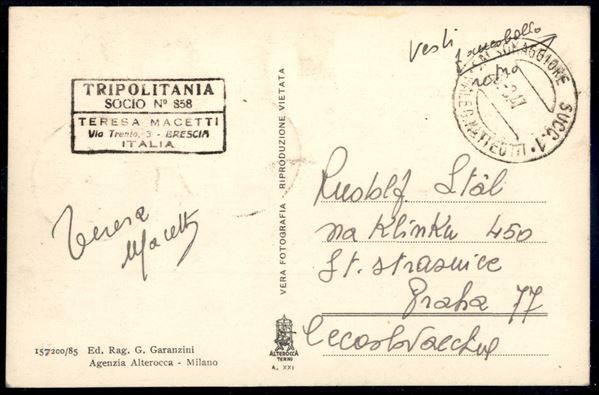 TRIPOLITANIA
SOCIO Nº 858
TERESA MACETTI
Via Trento, 3 - BRESCIA
ITALIA
Teresa
Macetti
157200/85 Ed. Rag. G. Garanzini
Agenzia Alterocca - Milano
VERA FOTOGRAFIA - RIPRODUZIONE VIETATA
ALTEROCCA
TERNI
A. XXI
Vesti francobollo
SUCC. 1
Rudolf Stál
na Klínku 450
St. strasnice
Praha 77
Cecoslovacchia